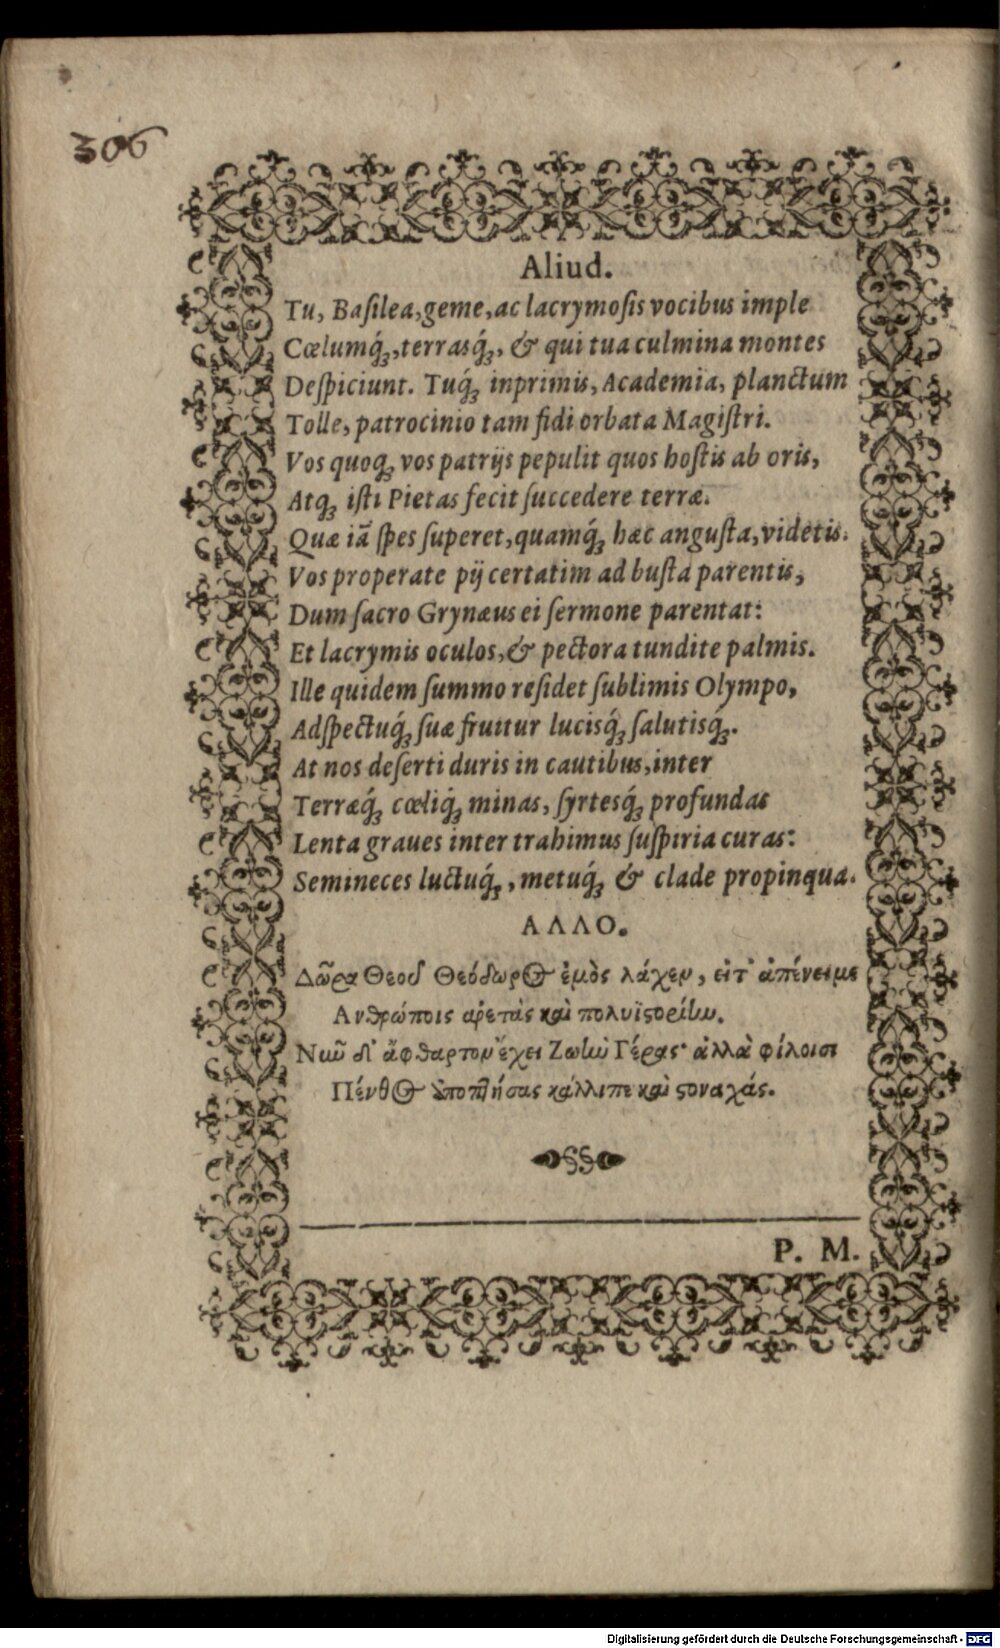 306
Aliud.
Tu, Baſilea, geme, ac lacrymoſis vocibus imple
Cœlumq́ꝫ, terrasq́ꝫ, & qui tua culmina montes
Deſpiciunt. Tuq́ꝫ inprimis, Academia, planctum
Tolle, patrocinio tam fidi orbata Magiſtri.
Vos quoqꝫ vos patrijs pepulit quos hoſtis ab oris,
Atqꝫ iſti Pietas fecit ſuccedere terræ.
Quæ iã ſpes ſuperet, quamq́ꝫ hæc anguſta, videtis.
Vos properate pij certatim ad buſta parentis,
Dum ſacro Grynæus ei ſermone parentat:
Et lacrymis oculos, & pectora tundite palmis.
Ille quidem ſummo reſidet ſublimis Olympo,
Adſpectuq́ꝫ ſuæ fruitur lucisq́ꝫ ſalutisq́ꝫ.
At nos deſerti duris in cautibus, inter
Terræq́ꝫ cœliq́ꝫ minas, ſyrtesq́ꝫ profundas
Lenta graues inter trahimus ſuſpiria curas:
Semineces luctuq́ꝫ, metuq́ꝫ & clade propinqua.
ΑΛΛΟ.
Δῶρα Θεοῦ Θεόδωρος ἐμὸς λάχεν, εἶτ' ἀπένειμε
Ανθρώποις ἀρετὰς καὶ πολυϊστορίην.
Νιῦ δ' ἄφθαρτον ἔχει Ζωὴν Γέρας· ἀλλὰ φίλοισι
Πένθος ὑποπλήσας κάλλιπε καὶ στοναχάς.
P. M.
Digitalisierung gefördert durch die Deutsche Forschungsgemeinschaft - DFG